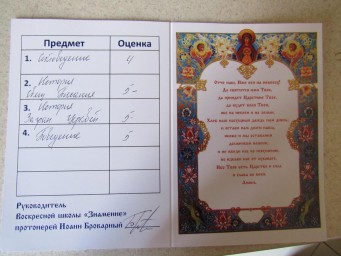 Предмет Оценка
1. 4
2. История 5-
3. История 5-
4. Поведение 5
Руководитель
Воскресной школы «Знамение»
протоиерей Иоанн Броварный
Отче наш, Иже еси на небесех!
Да святится имя Твое,
да приидет Царствие Твое,
да будет воля Твоя,
яко на небеси и на земли.
Хлеб наш насущный даждь нам днесь;
и остави нам долги наша,
якоже и мы оставляем
должником нашим;
и не введи нас во искушение,
но избави нас от лукаваго.
Яко Твое есть Царство и сила
и слава во веки.
Аминь.